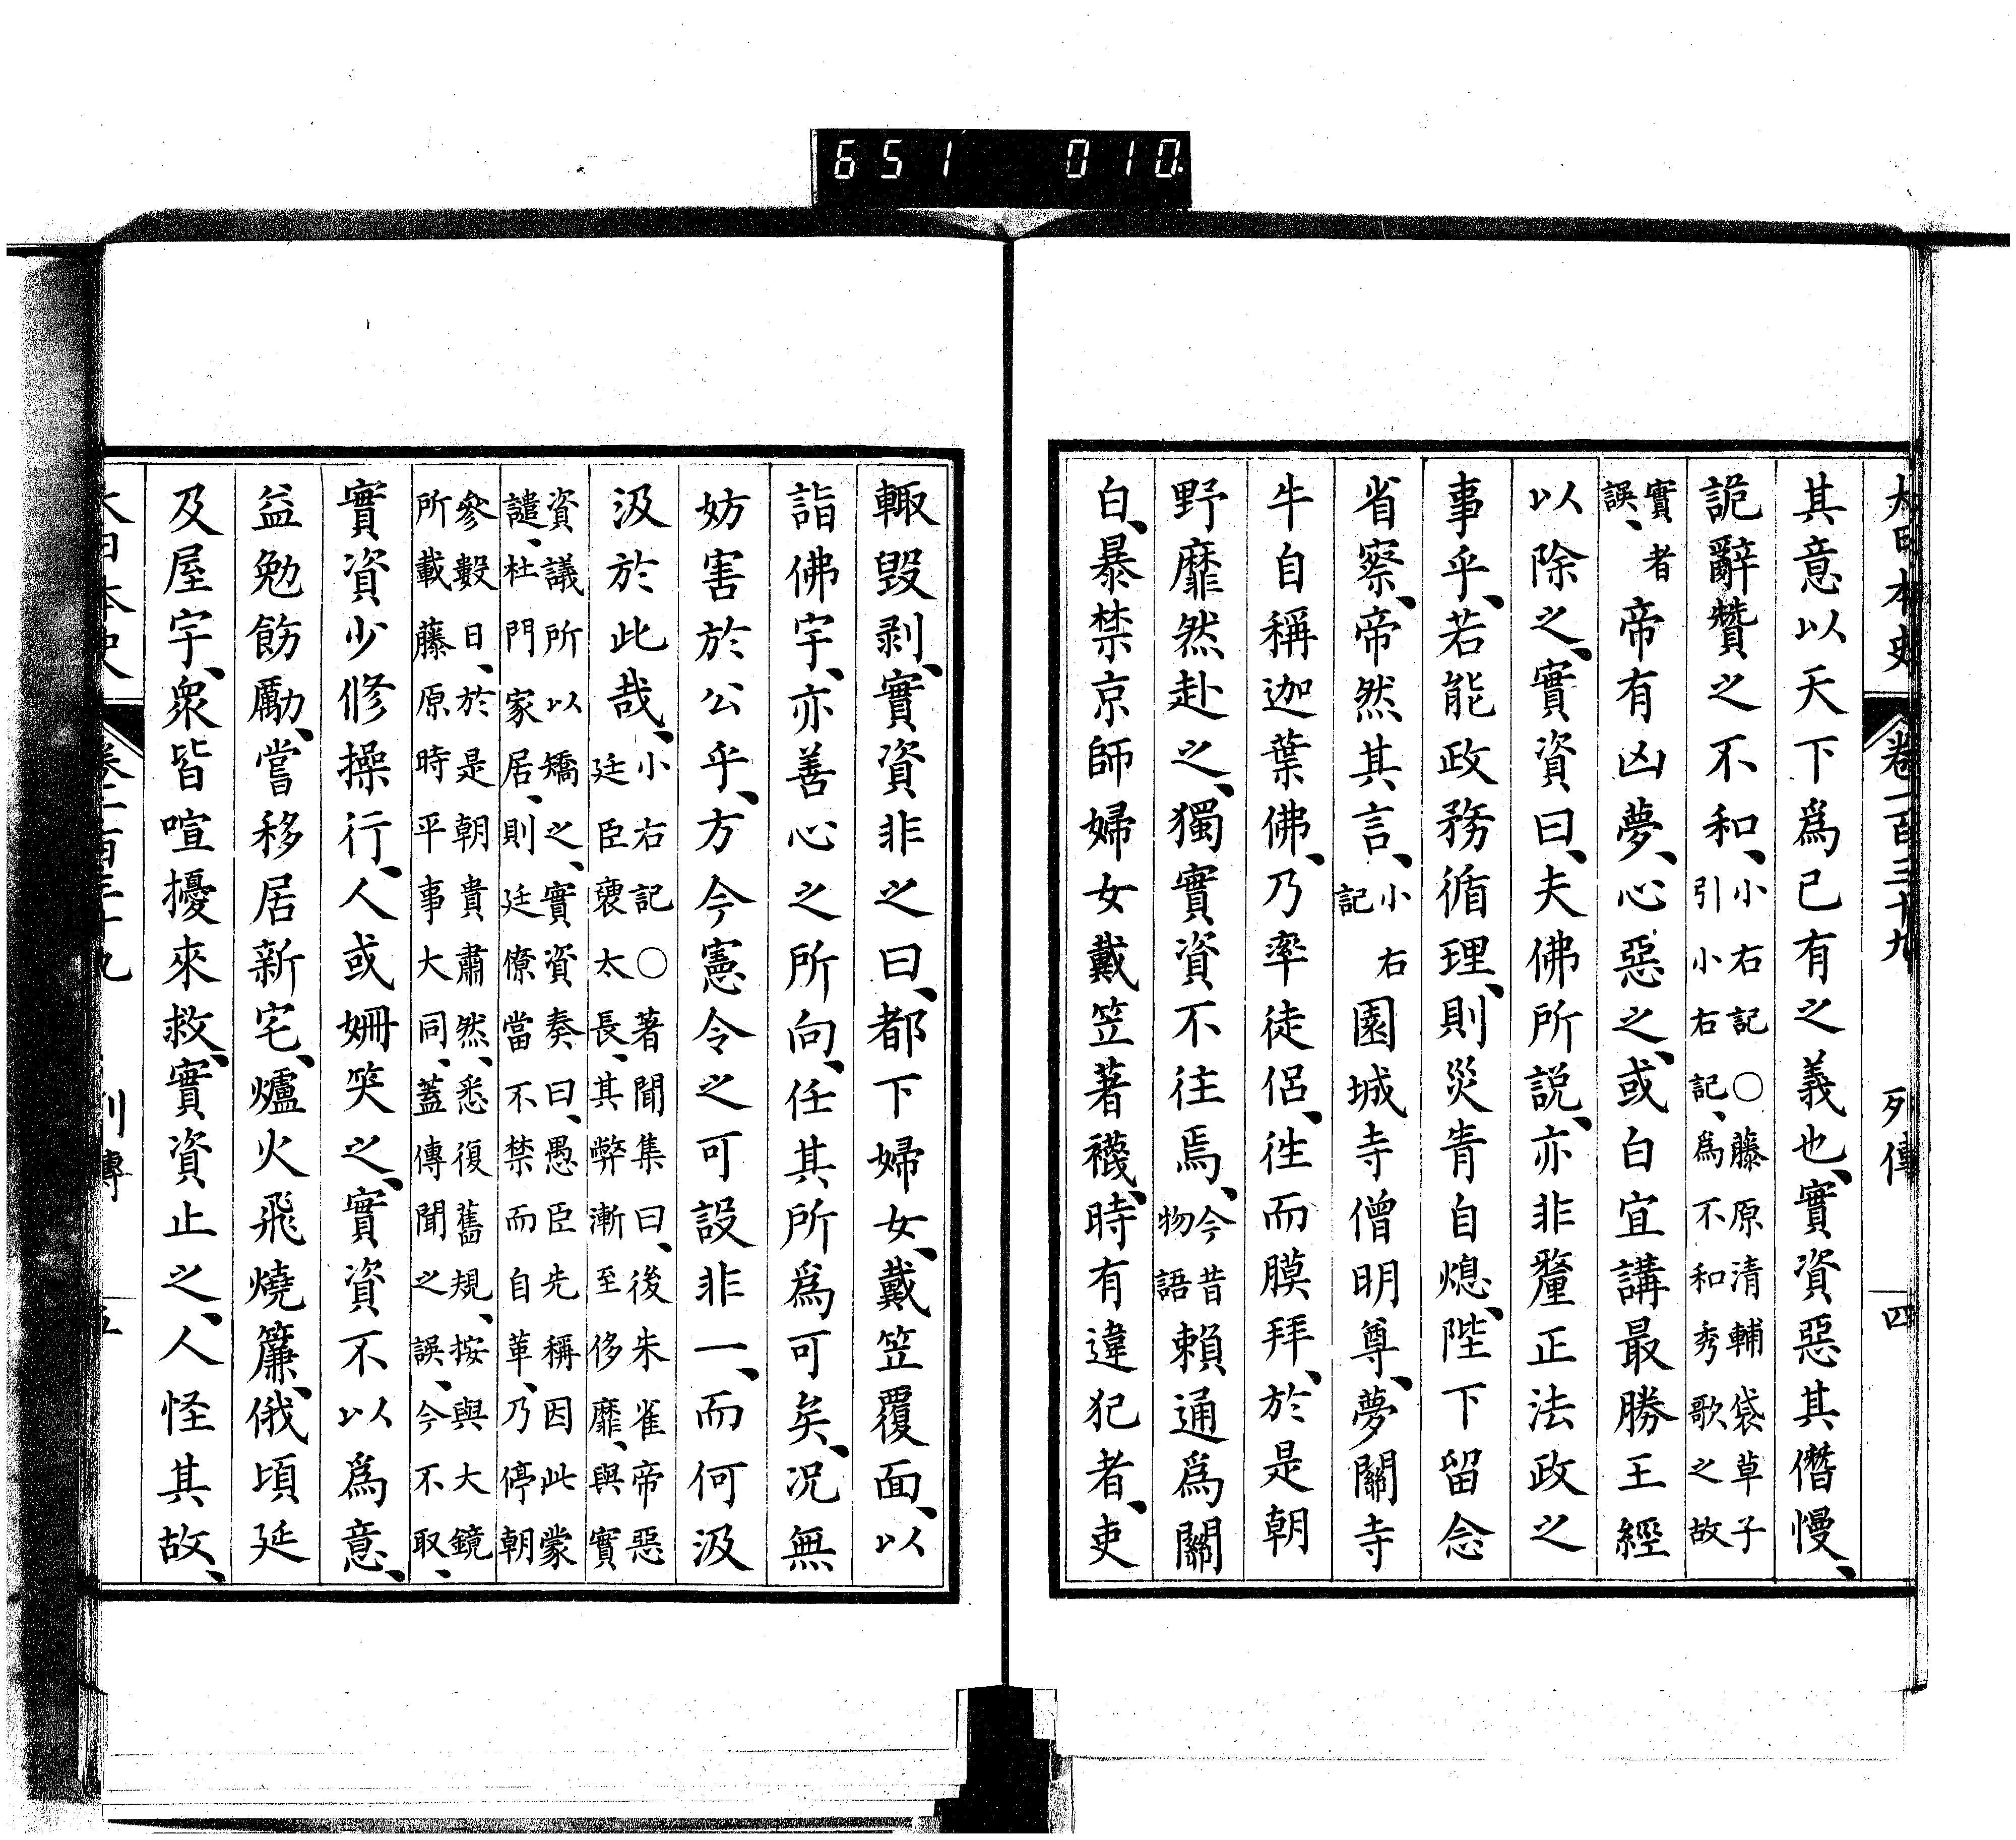 651 010
大日本史 卷一百三十九 列傳 四
其意以天下爲已有之義也、實資惡其僭慢、
詭辭贊之不和、小右記〇藤原清輔袋草子引小右記、爲不和秀歌之故
誤、實者帝有凶夢、心惡之、或白宜講最勝王經
以除之、實資曰、夫佛所説、亦非釐正法政之
事乎、若能政務循理、則災眚自熄、陛下留念
省察、帝然其言、小右記園城寺僧明尊、夢關寺
牛自稱迦葉佛、乃率徒侶、徃而膜拜、於是朝
野靡然赴之、獨實資不往焉、今昔物語賴通爲關
白、暴禁京師婦女戴笠著襪、時有違犯者、吏
輙毀剥、實資非之曰、都下婦女、戴笠覆面、以
詣佛宇、亦善心之所向、任其所爲可矣、况無
妨害於公乎、方今憲令之可設非一、而何汲
汲於此哉、小右記〇著聞集曰、後朱雀帝惡廷臣裵太長、其弊漸至侈靡、與實
資議所以矯之、實資奏曰、愚臣先稱因此蒙譴、杜門家居、則廷僚當不禁而自革、乃停朝
參數日、於是朝貴肅然、悉復舊規、按與大鏡所載藤原時平事大同、蓋傳聞之誤、今不取、
實資少修操行、人或姍笑之、實資不以爲意、
益勉飭勵、嘗移居新宅、爐火飛燒簾、俄頃延
及屋宇、衆皆喧擾來救、實資止之、人怪其故、
大日本史 卷一百三十九 列傳 五